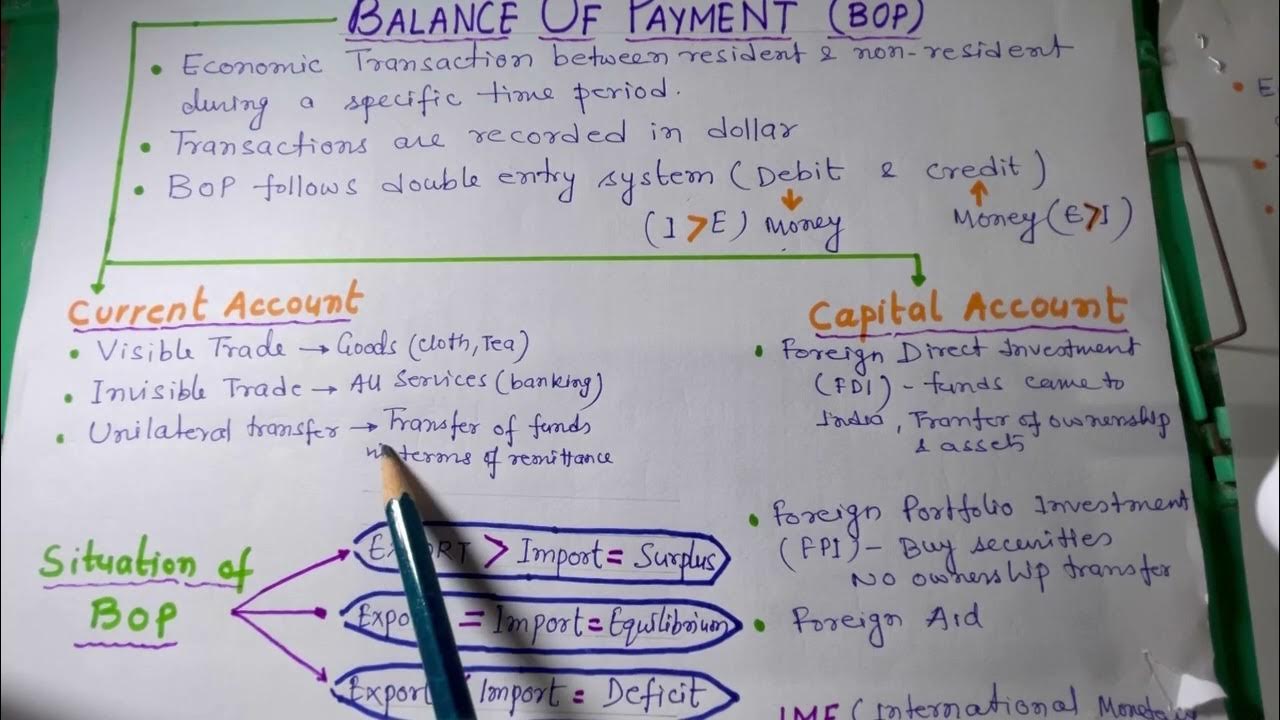 BALANCE OF PAYMENT (BOP)
• Economic Transaction between resident & non-resident
during a specific time period.
• Transactions are recorded in dollar
• BOP follows double entry system (Debit & credit)
(I > E) Money
Money (E > I)
Current Account
• Visible Trade → Goods (cloth, Tea)
• Invisible Trade → All Services (banking)
• Unilateral transfer → Transfer of funds
terms of remittance
Capital Account
• Foreign Direct Investment
(FDI) - funds came to
India, Tranfer of ownership
& assets
• Foreign Portfolio Investment
(FPI) - Buy securities
No ownership transfer
• Foreign Aid
Situation of
BOP
> Import = Surplus
= Import = Equilibrium
Export Import = Deficit
IMF (International
E